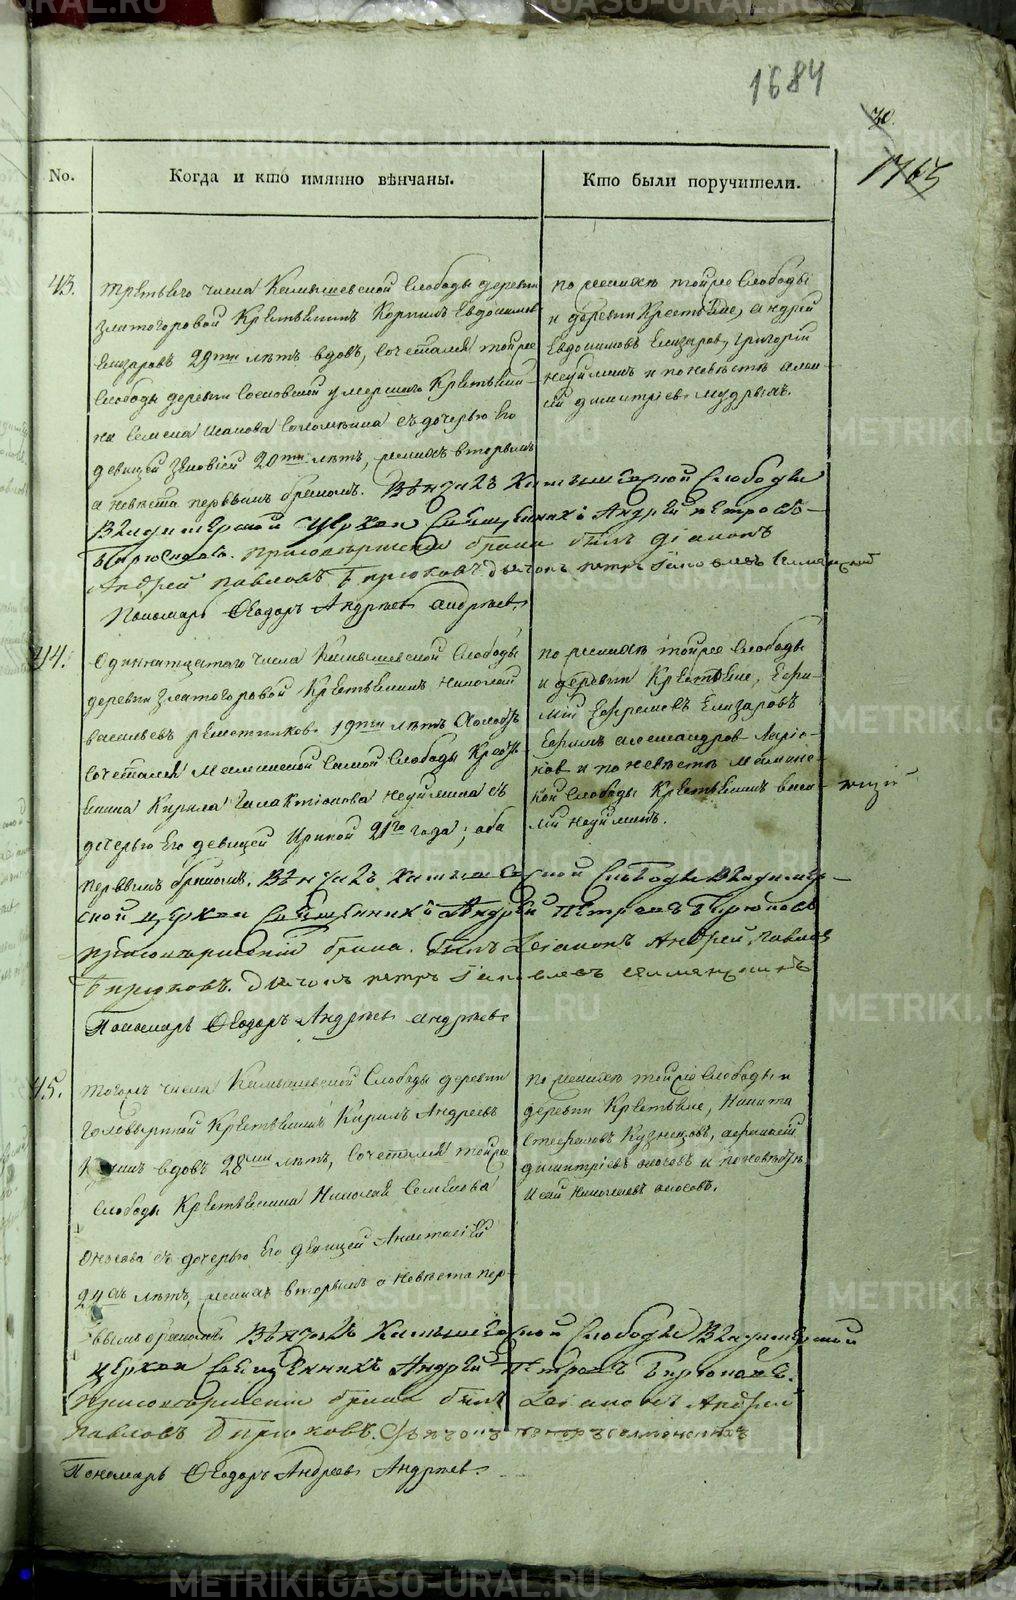 1684
30.
1765
No.
Когда и кто имянно вѣнчаны.
Кто были поручители.
43.
третьяго числа Камышевской Слободы деревни
Златогоровой Крестьянинъ Корнилъ Евдокимов
Елизаровъ 29ти лѣтъ вдовъ, сочетался тойже
Слободы деревни Сосновской умершаго Крестьяни-
на Семена Иванова съ дочерью Его
девицей Зеновіей 20ти лѣтъ, женихъ вторымъ
а невеста первымъ бракомъ. Вѣнчалъ Камышевской Слободы
Владимерской Церкви Священникъ Андрей Петровъ
Бирюковъ. При совершеніи брака былъ діаконъ
Андрей Павловъ Бирюковъ дьячокъ Петръ Яковлевъ
Пономарь Ѳеодоръ Андреевъ Андреевъ
по женихѣ тойже Слободы
и деревни Крестьяне, Андрей
Евдокимовъ Елизаровъ, Григорій
и по невѣстѣ
Димитріевъ Мудрыхъ.
44.
Одиннатцатого числа Камышевской Слободы
деревни Златогоровой Крестьянинъ Николай
Васильевъ Решетниковъ 19ти лѣтъ Холостъ
сочетался Маминской самой Слободы Кресть-
янина Кирила Галактіонова съ
дочерью Его девицей Ириной 21го года; оба
первымъ бракомъ. Вѣнчалъ Камышевской Слободы Владимер-
ской Церкви Священникъ Андрей Петровъ Бирюковъ
при совершеніи брака былъ Діаконъ Андрей Павловъ
Бирюковъ. Дьячокъ Петръ Яковлевъ
Пономарь Ѳеодоръ Андреевъ Андреевъ
по женихѣ тойже Слободы
и деревни Крестьяне, Ефи-
мій Ефремовъ Елизаровъ
Ефимъ Александровъ Ларіо-
новъ и по невѣстѣ Маминс-
кой Слободы Крестьянинъ Васи-
лій
45.
тогожъ числа Камышевской Слободы деревни
Головыриной Крестьянинъ Кирилъ Андреевъ
вдовъ 28ми лѣтъ, сочетался тойже
Слободы Крестьянина Николая Семенова
Оносова съ дочерью Его девицей Анастасіей
24хъ лѣтъ, женихъ вторымъ а невеста пер-
вымъ бракомъ. Вѣнчалъ Камышевской Слободы Владимерской
церкви Священникъ Андрей Петровъ Бирюковъ.
При совершеніи брака былъ Діаконъ Андрей
Павловъ Бирюковъ. Дьячокъ Петръ
Пономарь Ѳеодоръ Андреевъ Андреевъ
по женихѣ тойже Слободы и
деревни Крестьяне, Никита
Стефановъ Кузнецовъ,
Димитріевъ Оносовъ и по невѣстѣ
Исай Николаевъ Оносовъ.
METRIKI.GASO-URAL.RU